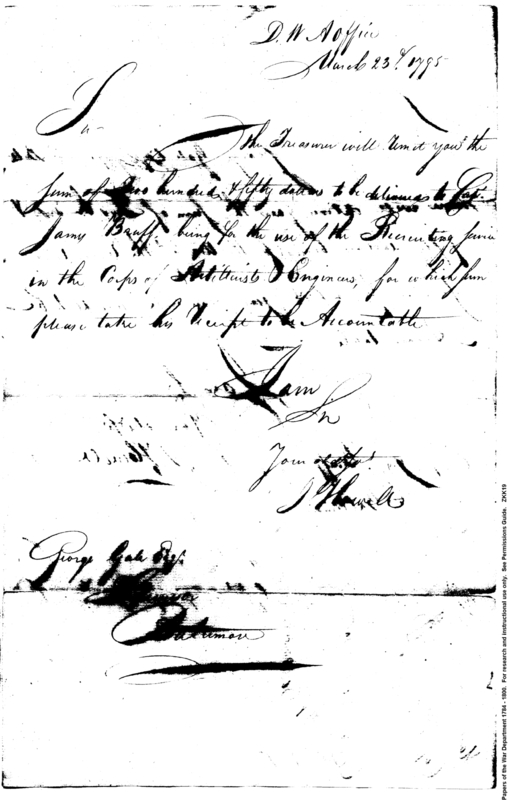 D. W. A office
March 23d. 1795
Sir
the Treasurer will remit you the
sum of Two hundred & fifty dollars to be delivered to Cap.
James Bruff being for the use of the Recruiting service
in the Corps of Artillerists & Engineers, for which sum
please take his Receipt to be Accountable
I am
Sir
Your
J Howell
George Gale Esqr.
Baltimore
Papers of the War Department 1784 - 1800. For research and instructional use only. See Permissions Guide. ZKK19